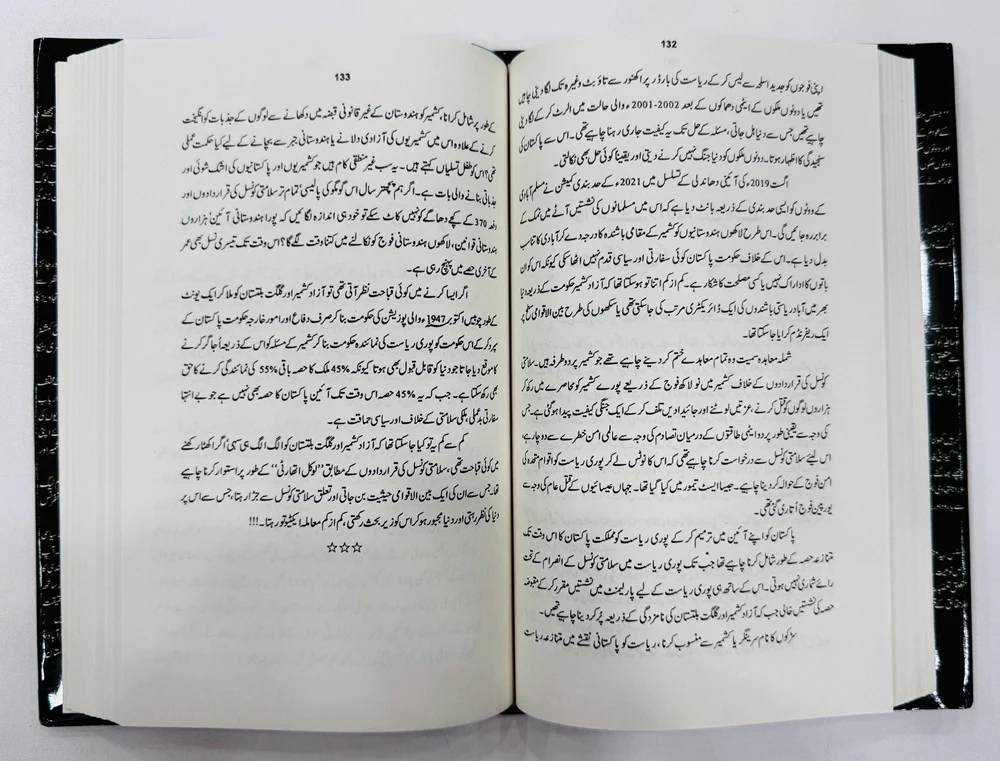 132
اپنی فوجوں کو جدید اسلحہ سے لیس کر کے ریاست کی بارڈر پر اکھنور سے تاؤ بٹ وغیرہ تک لگا دینی چاہیں
تھیں یا دونوں ملکوں کے ایٹمی دھماکوں کے بعد 2002-2001ء والی حالت میں الرٹ کر کے لگا دینی
چاہیے تھیں جس سے دنیا ہل جاتی، مسئلہ کے حل تک یہ کیفیت جاری رہنا چاہیے تھی۔ اس سے پاکستان کی
سنجیدگی کا اظہار ہوتا۔ دونوں ملکوں کو دنیا جنگ نہیں کرنے دیتی اور یقیناً کوئی حل بھی نکالتی۔
اگست 2019ء کی آئینی دھاندلی کے تسلسل میں 2021ء کے حد بندی کمیشن نے مسلم آبادی
کے ووٹوں کو ایسی حد بندی کے ذریعہ بانٹ دیا ہے کہ اس میں مسلمانوں کی نشستیں آٹے میں نمک کے
برابر رہ جائیں گی۔ اس طرح لاکھوں ہندوستانیوں کو کشمیر کے مقامی باشندہ کا درجہ دے کر آبادی کا تناسب
بدل دیا ہے۔ اس کے خلاف حکومت پاکستان کوئی سفارتی اور سیاسی قدم نہیں اٹھا سکی کیونکہ اس کو ان
باتوں کا ادراک نہیں یا کسی مصلحت کا شکار ہے۔ کم از کم اتنا تو ہو سکتا تھا کہ آزاد کشمیر حکومت کے ذریعہ دنیا
بھر میں آباد ریاستی باشندوں کی ایک ڈائریکٹری مرتب کی جا سکتی تھی یا سکھوں کی طرح بین الاقوامی سطح پر
ایک ریفرنڈم کرایا جا سکتا تھا۔
شملہ معاہدہ سمیت وہ تمام معاہدے ختم کر دینے چاہیے تھے جو کشمیر پر دو طرفہ ہیں۔ سلامتی
کونسل کی قراردادوں کے خلاف کشمیر میں نو لاکھ فوج کے ذریعے پورے کشمیر کو محاصرے میں رکھ کر
ہزاروں لوگوں کو قتل کرنے، عزتیں لوٹنے اور جائیدادیں تلف کر کے ایک جنگی کیفیت پیدا ہو گئی ہے جس
کی وجہ سے یقینی طور پر دو ایٹمی طاقتوں کے درمیان تصادم کی وجہ سے عالمی امن خطرے سے دوچار ہے،
اس لیئے سلامتی کونسل سے درخواست کرنا چاہیے تھی کہ اس کا نوٹس لے کر پوری ریاست کو اقوام متحدہ کی
امن فوج کے حوالہ کر دینا چاہیے۔ جیسا ایسٹ تیمور میں کیا گیا تھا۔ جہاں عیسائیوں کے قتل عام کی وجہ سے
یورپین فوج اُتاری گئی تھی۔
پاکستان کو اپنے آئین میں ترمیم کر کے پوری ریاست کو مملکت پاکستان کا اس وقت تک
متنازعہ حصہ کے طور شامل کرنا چاہیے تھا جب تک پوری ریاست میں سلامتی کونسل کے انصرام کے تحت
رائے شماری نہیں ہوتی۔ اس کے ساتھ ہی پوری ریاست کے لیے پارلیمنٹ میں نشستیں مقرر کر کے مقبوضہ
حصہ کی نشستیں خالی جب کہ آزاد کشمیر اور گلگت بلتستان کی نامزدگی کے ذریعہ پُر کر دینا چاہیے تھیں۔
سڑکوں کا نام سرینگر یا کشمیر سے منسوب کرنا، ریاست کو پاکستانی نقشے میں متنازعہ ریاست
133
کے طور پر شامل کرانا، کشمیر کو ہندوستان کے غیر قانونی قبضہ میں دکھانے سے لوگوں کے جذبات کو انگیخت
کرنے کے علاوہ اس میں کشمیریوں کی آزادی دلانے یا ہندوستانی جبر سے بچانے کے لیے کیا حکمت عملی
تھی؟ اس کو طفل تسلیاں کہتے ہیں۔ یہ سب غیر منطقی کام ہیں جو کشمیریوں اور پاکستانیوں کی اشک شوئی اور
جذباتی بنانے والی بات ہے۔ اگر ہم پچھتر سال اس گومگو کی پالیسی تمام تر سلامتی کونسل کی قراردادوں اور
دفعہ 370 کے کچے دھاگے کو نہیں کاٹ سکے تو خود ہی اندازہ لگائیں کہ پورا ہندوستانی آئین، ہزاروں
ہندوستانی قوانین، لاکھوں ہندوستانی فوج کو نکالنے میں کتنا وقت لگے گا؟ اس وقت تک تیسری نسل بھی عمر
کے آخری حصے میں پہنچ رہی ہے۔
اگر ایسا کرنے میں کوئی قباحت نظر آتی تھی تو آزاد کشمیر اور گلگت بلتستان کو ملا کر ایک یونٹ
کے طور چوبیس اکتوبر 1947ء والی پوزیشن کی حکومت بنا کر صرف دفاع اور امور خارجہ حکومت پاکستان کے
سپرد کر کے اس حکومت کو پوری ریاست کی نمائندہ حکومت بنا کر کشمیر کے مسئلہ کو اس کے ذریعہ اُجاگر کرنے
کا موقع دیا جاتا جو دنیا کو قابل قبول بھی ہوتا کیونکہ 45% ملک کا حصہ باقی 55% کی نمائندگی کرنے کا حق
بھی رکھ سکتا ہے۔ جب کہ یہ 45% حصہ اس وقت تک آئین پاکستان کا حصہ بھی نہیں ہے جو بے انتہا
سفارتی بدعملی، ملکی سلامتی کے خلاف اور سیاسی حماقت ہے۔
کم سے کم یہ تو کیا جا سکتا تھا کہ آزاد کشمیر اور گلگت بلتستان کو الگ الگ ہی سہی اگر اکھٹا رکھنے
میں کوئی قباحت تھی، سلامتی کونسل کی قراردادوں کے مطابق ’’لوکل اتھارٹی‘‘ کے طور پر استوار کرنا چاہیے
تھا۔ جس سے ان کی ایک بین الاقوامی حیثیت بن جاتی اور تعلق سلامتی کونسل سے جڑا رہتا، جس سے اس پر
دنیا کی نظر رہتی اور دنیا مجبور ہو کر اس کو زیر بحث رکھتی، کم از کم معاملہ ایکٹیو تو رہتا۔!!!
☆☆☆